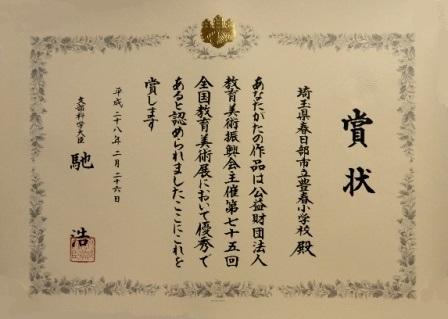 賞状
埼玉県春日部市立豊春小学校 殿
あなたがたの作品は公益財団法人
教育美術振興会主催第七十五回
全国教育美術展において優秀で
あると認められましたここにこれを
賞します
平成二十八年二月二十六日
文部科学大臣 馳 浩